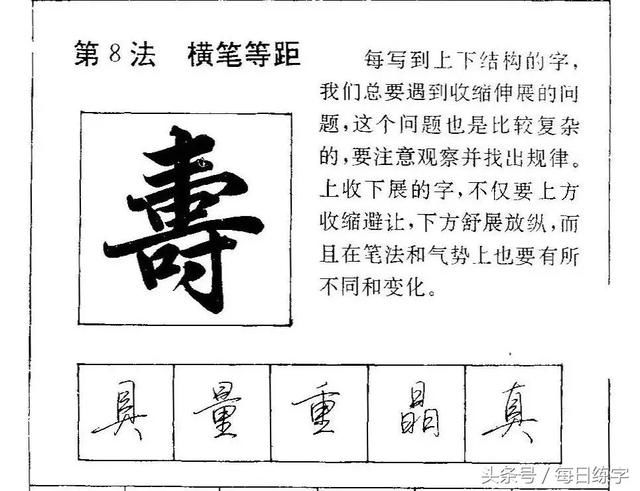 第8法 横笔等距
每写到上下结构的字,
我们总要遇到收缩伸展的问
题,这个问题也是比较复杂
的,要注意观察并找出规律。
上收下展的字,不仅要上方
收缩避让,下方舒展放纵,而
且在笔法和气势上也要有所
不同和变化。
壽
具 量 重 晶 真
头条号/每日练字